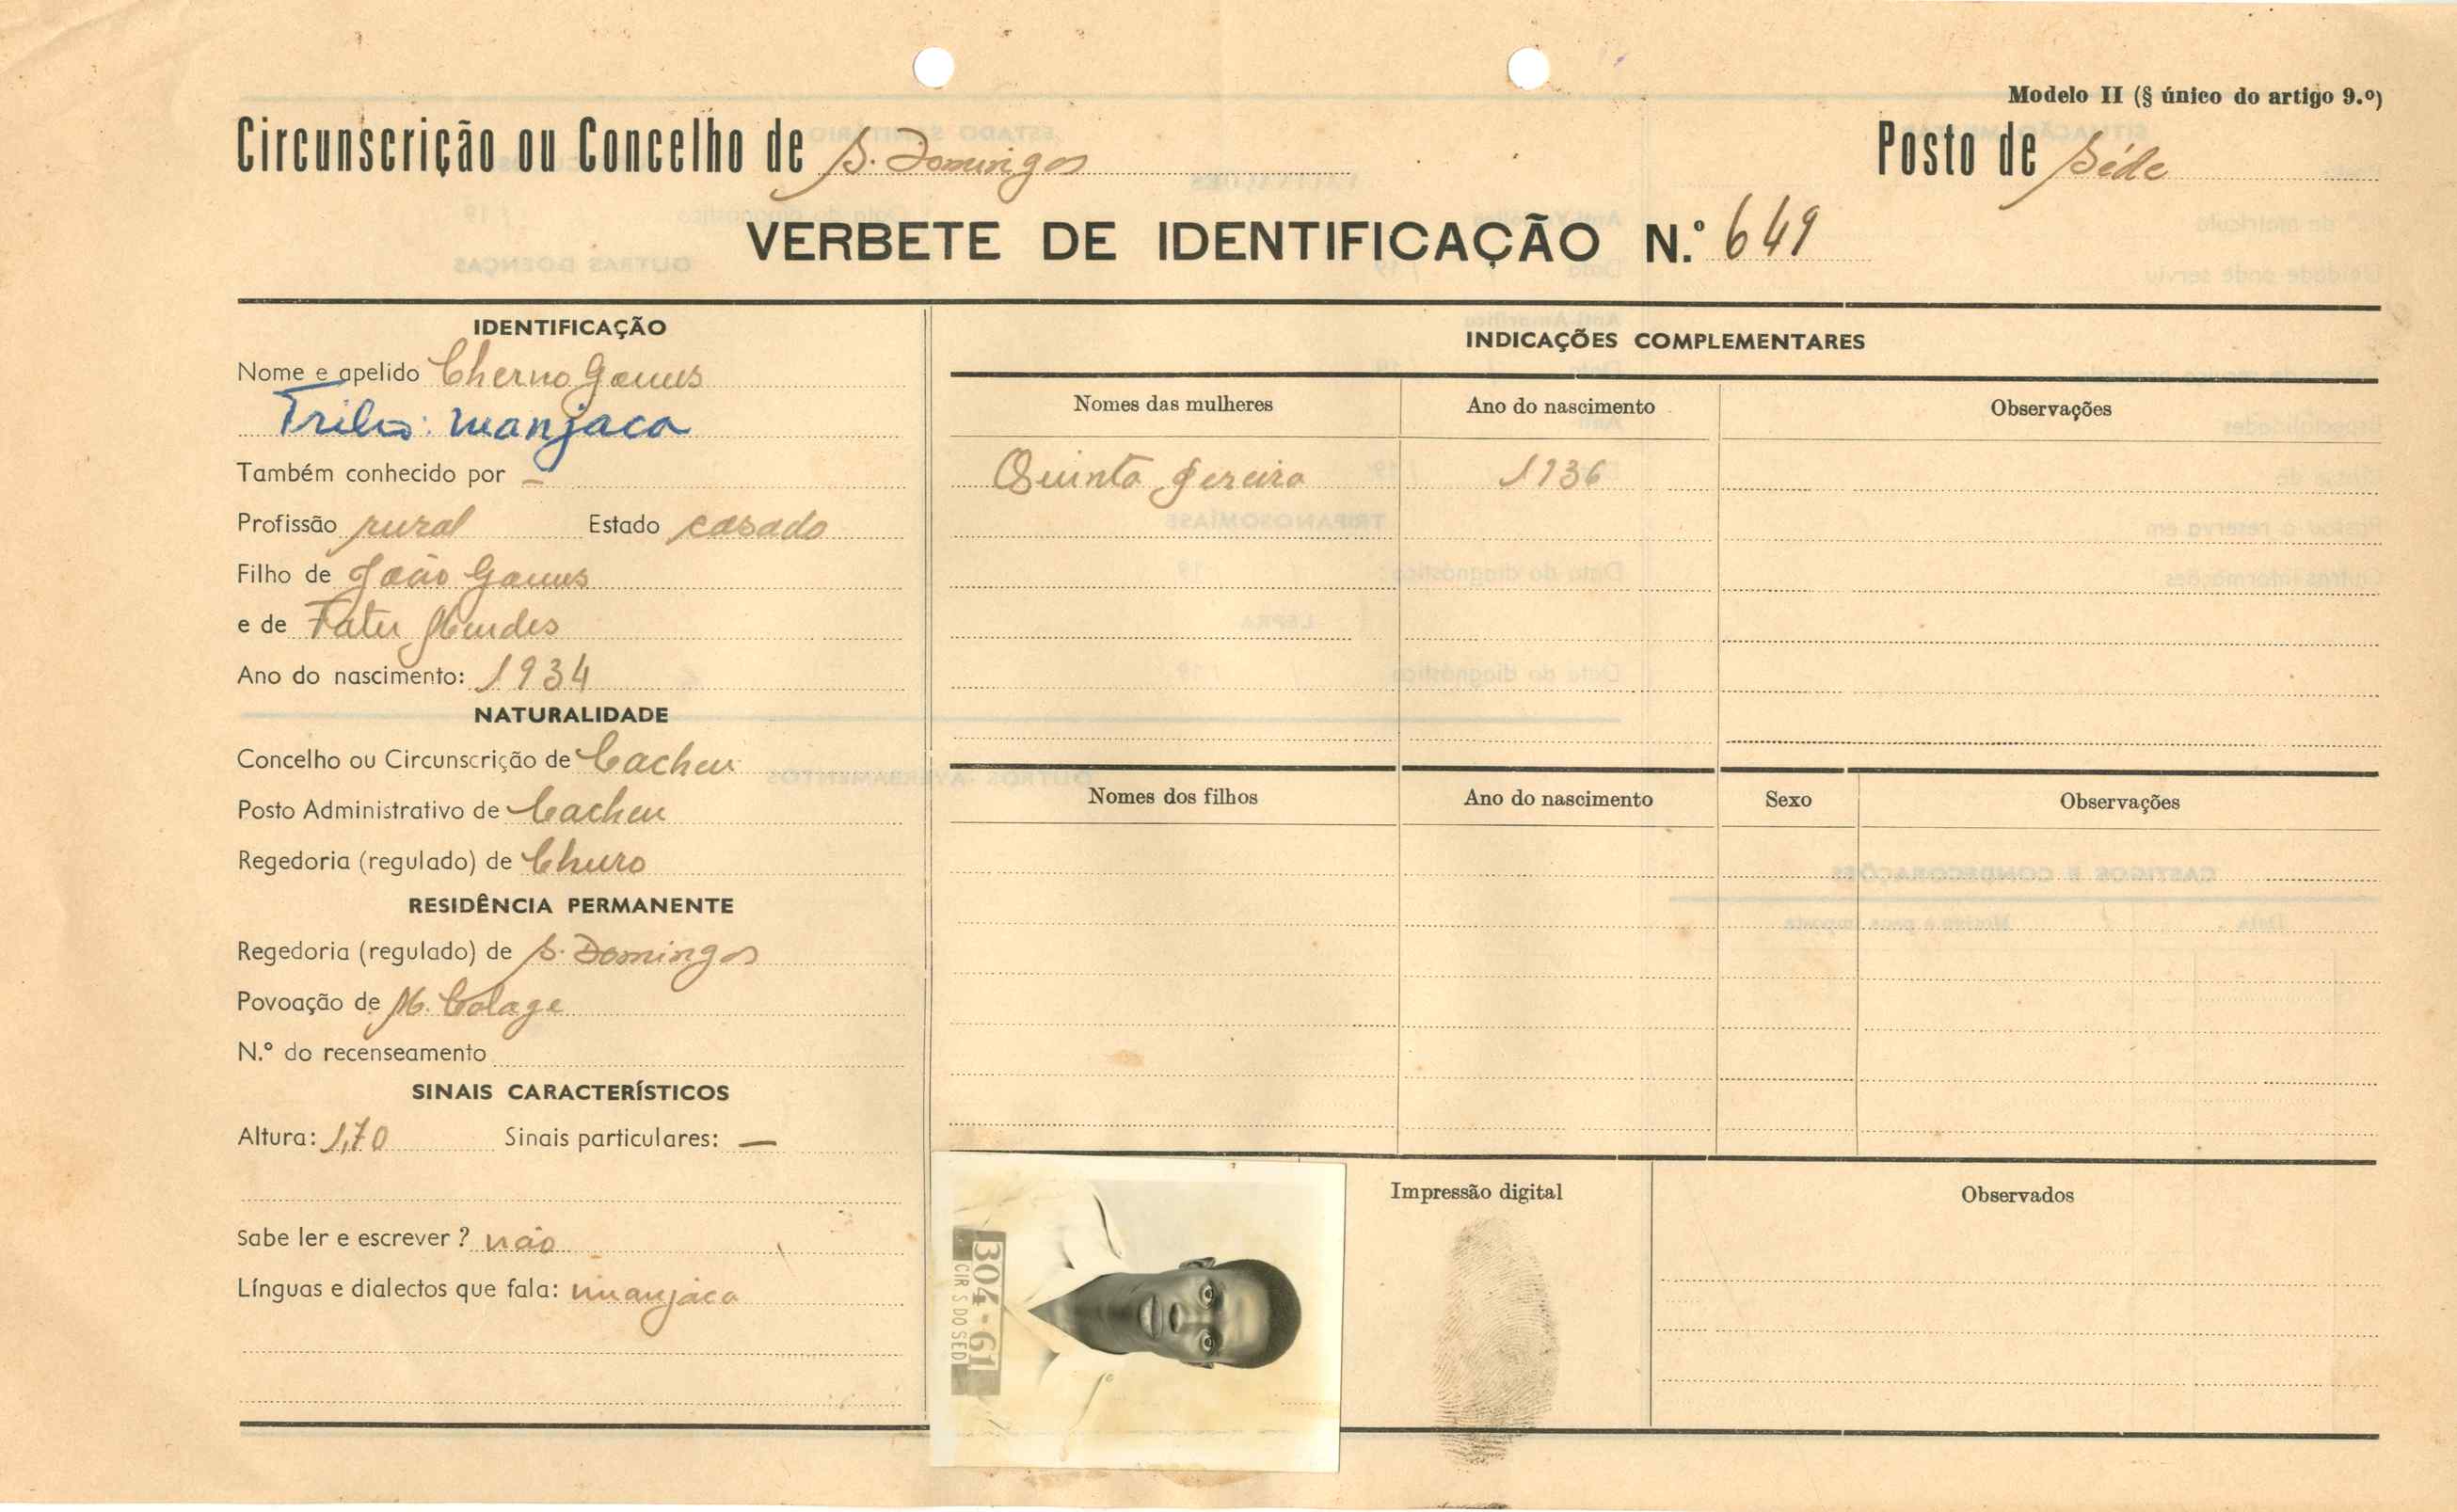 Modelo II (§ único do artigo 9.º)
Circunscrição ou Concelho de S. Domingos
Posto de Séde
VERBETE DE IDENTIFICAÇÃO N.º 649
IDENTIFICAÇÃO
Nome e apelido Cherno Gomes
Tribo: manjaca
Também conhecido por —
Profissão rural Estado casado
Filho de João Gomes
e de Fatu Mendes
Ano do nascimento: 1934
NATURALIDADE
Concelho ou Circunscrição de Cacheu
Posto Administrativo de Cacheu
Regedoria (regulado) de Churo
RESIDÊNCIA PERMANENTE
Regedoria (regulado) de S. Domingos
Povoação de M. Colage
N.º do recenseamento
SINAIS CARACTERÍSTICOS
Altura: 1,70 Sinais particulares: —
Sabe ler e escrever? não
Línguas e dialectos que fala: manjaca
INDICAÇÕES COMPLEMENTARES
Nomes das mulheres Ano do nascimento Observações
Quinta Pereira 1936
Nomes dos filhos Ano do nascimento Sexo Observações
304-61
CIR S DO SED
Impressão digital
Observados